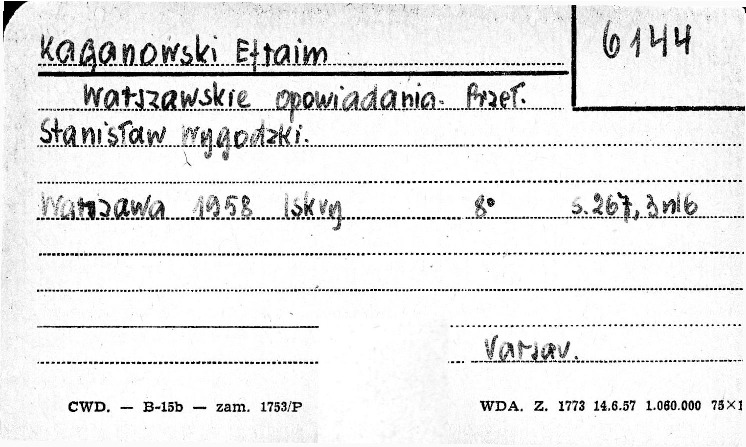 Kaganowski Efraim
6144
Warszawskie opowiadania. Przeł.
Stanisław Wygodzki.
Warszawa 1958 Iskry 8° s. 267, 3 nlb
Varsav.
CWD. — B-15b — zam. 1753/P
WDA. Z. 1773 14.6.57 1.060.000 75×1